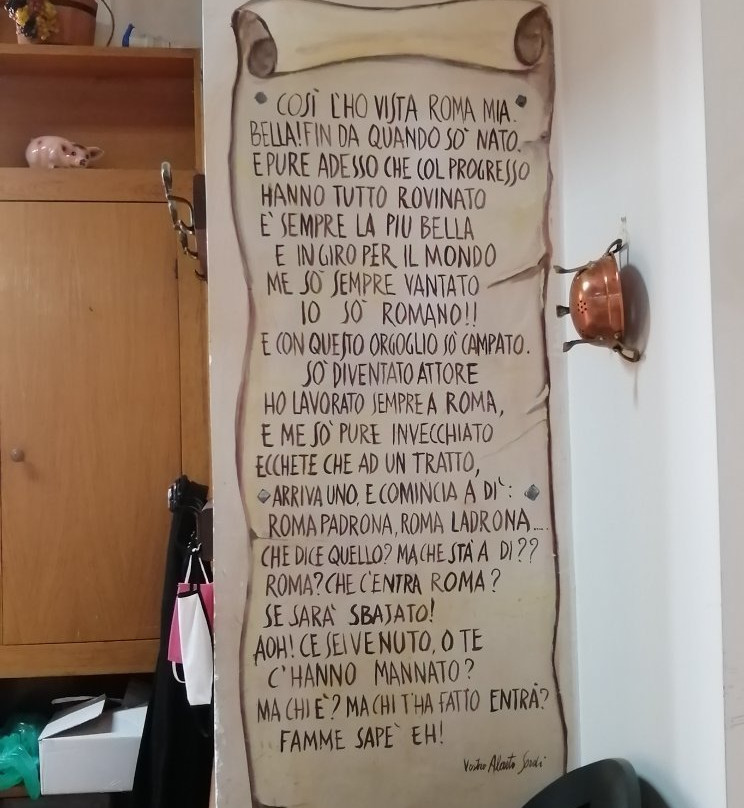 COSÌ L'HO VISTA ROMA MIA.
BELLA! FIN DA QUANDO SÒ NATO.
E PURE ADESSO CHE COL PROGRESSO
HANNO TUTTO ROVINATO
E' SEMPRE LA PIU BELLA
E IN GIRO PER IL MONDO
ME SÒ SEMPRE VANTATO
IO SÒ ROMANO!!
E CON QUESTO ORGOGLIO SÒ CAMPATO.
SÒ DIVENTATO ATTORE
HO LAVORATO SEMPRE A ROMA,
E ME SÒ PURE INVECCHIATO
ECCHETE CHE AD UN TRATTO,
ARRIVA UNO, E COMINCIA A DI':
ROMA PADRONA, ROMA LADRONA....
CHE DICE QUELLO? MA CHE STA' A DI??
ROMA? CHE C'ENTRA ROMA?
SE SARA' SBAJATO!
AOH! CE SEI VENUTO, O TE
C'HANNO MANNATO?
MA CHI E'? MA CHI T'HA FATTO ENTRÀ?
FAMME SAPE' EH!
Vostro Alberto Sordi